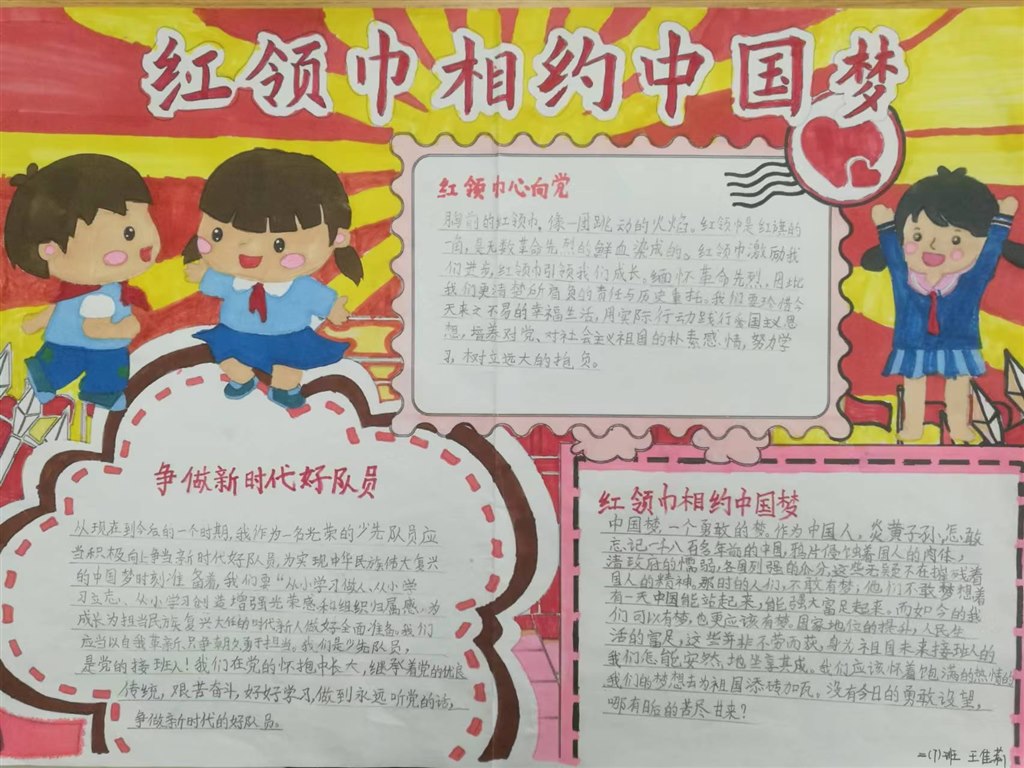 红领巾相约中国梦
红领巾心向党
胸前的红领巾，像一团跳动的火焰。红领巾是红旗的
一角，是无数革命先烈的鲜血染成的。红领巾激励我
们进步，红领巾引领我们成长。缅怀革命先烈，用此
我们更清楚所肩负的责任与历史重托。我们要珍惜今
天来之不易的幸福生活，用实际行动践行爱国主义思
想，培养对党、对社会主义祖国的朴素感情，努力学
习，树立远大的抱负。
争做新时代好队员
从现在到今后的一个时期，我作为一名光荣的少先队员应
当积极向上争当新时代好队员，为实现中华民族伟大复兴
的中国梦时刻准备着，我们要“从小学习做人、从小学
习立志、从小学习创造增强光荣感和组织归属感，为
成长为担当民族复兴大任的时代新人做好全面准备。我们
应当以自我革新、只争朝夕勇于担当。我们是少先队员，
是党的接班人！我们在党的怀抱中长大，继承着党的优良
传统，艰苦奋斗，好好学习，做到永远听党的话，
争做新时代的好队员。
红领巾相约中国梦
中国梦，一个勇敢的梦。作为中国人，炎黄子孙，怎敢
忘记一千八百多年前的中国，鸦片侵蚀着国人的肉体，
清政府的懦弱，各国列强的瓜分，这些无疑不在摧残着
国人的精神。那时的人们，不敢有梦，他们不敢梦想着
有一天中国能站起来，能强大富足起来。而如今的我
们可以有梦，也更应该有梦。国家地位的提升，人民生
活的富足，这些并非不劳而获，身为祖国未来接班人的
我们怎能安然地坐享其成。我们应该怀着饱满的热情的
我们的梦想去为祖国添砖加瓦。没有今日的勇敢设望，
哪有后的苦尽甘来？
二(7)班 王佳莉